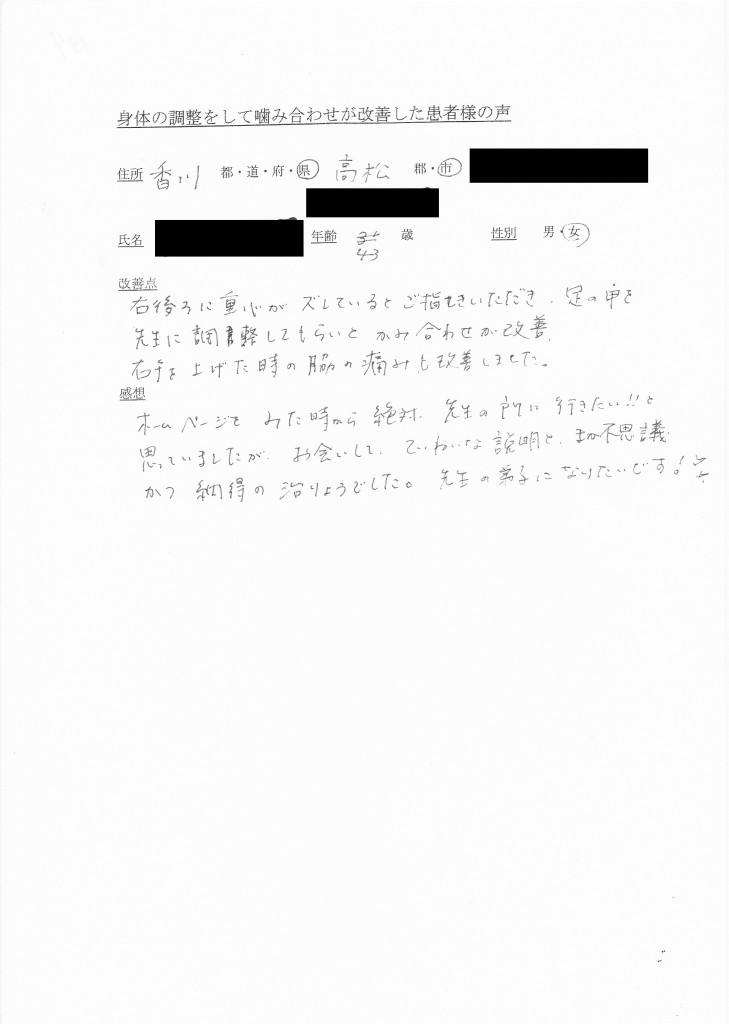 身体の調整をして噛み合わせが改善した患者様の声
住所 香川 都・道・府・県 高松 郡・市
氏名 年齢 43 歳 性別 男・女
改善点
右後ろに重心がズレているとご指摘いただき、足の中を
先生に調整してもらいと かみ合わせが改善、
右手を上げた時の脇の痛みも改善しました。
感想
ホームページを みた時から 絶対 先生の所に行きたい!!と
思っていましたが、お会いして、ていねいな説明と、まか不思議
かつ 納得の 治りょうでした。 先生の弟子になりたいです!